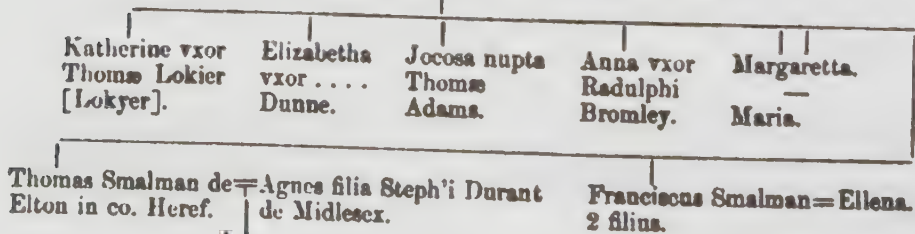 Katherine vxor
Thomæ Lokier
[Lokyer].
Elizabetha
vxor ....
Dunne.
Jocosa nupta
Thomæ
Adams.
Anna vxor
Radulphi
Bromley.
Margaretta.
—
Maria.
Thomas Smalman de = Agnes filia Steph'i Durant
Elton in co. Heref. de Midlesex.
Franciscus Smalman = Ellena.
2 filius.